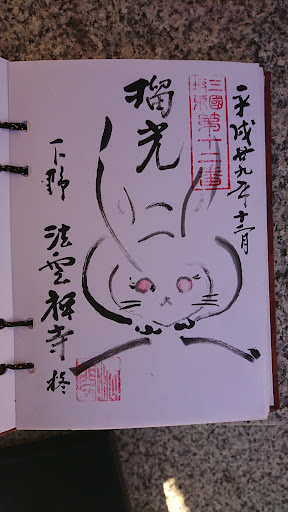 平成廿九年十二月
第十二番
瑠光
下野 法雲禅寺